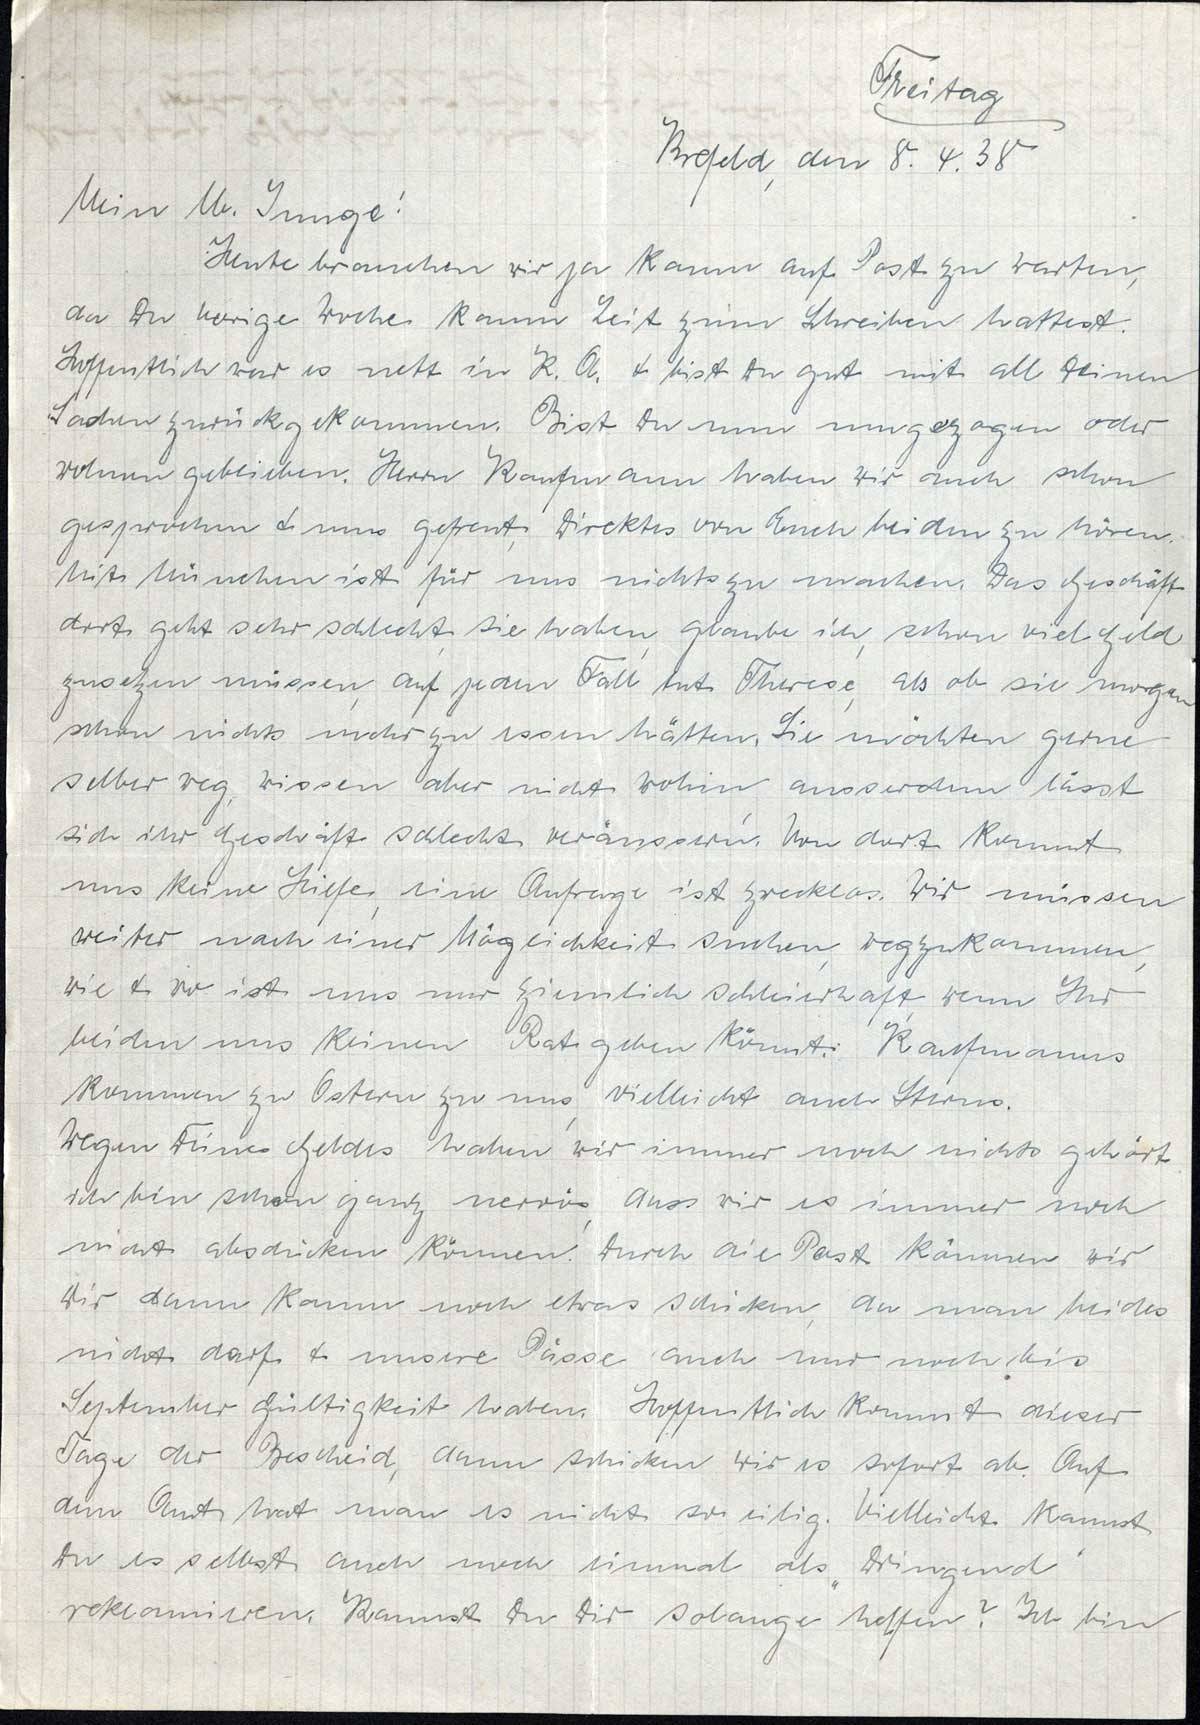 Freitag
Krefeld, den 8. 4. 38
Mein l. Junge!
Heute brauchen wir ja kaum auf Post zu warten,
da Du vorige Woche kaum Zeit zum Schreiben hattest.
Hoffentlich war es nett in K. A. & bist Du gut mit all Deinen
Sachen zurückgekommen. Bist Du nun umgezogen oder
wohnen geblieben. Herrn Kaufmann haben wir auch schon
gesprochen & uns gefreut, Direktes von Euch beiden zu hören.
Mit München ist für uns nichts zu machen. Das Geschäft
dort geht sehr schlecht, sie haben, glaube ich, schon viel Geld
zusetzen müssen, auf jeden Fall tut Therese, als ob sie morgen
schon nichts mehr zu essen hätten. Sie möchten gerne
selber weg, wissen aber nicht wohin ausserdem lässt
sich ihr Geschäft schlecht veräussern. Von dort kommt
uns keine Hilfe, eine Anfrage ist zwecklos. Wir müssen
weiter nach einer Möglichkeit suchen, wegzukommen,
wie & wo ist uns nur ziemlich schleierhaft, wenn Ihr
beiden uns keinen Rat geben könnt. Kaufmanns
kommen zu Ostern zu uns, vielleicht auch Sterns.
Wegen Deines Geldes haben wir immer noch nichts gehört
ich bin schon ganz nervös, dass wir es immer noch
nicht abschicken können. Durch die Post können wir
Dir dann kaum noch etwas schicken, da man beides
nicht darf & unsere Pässe auch nur noch bis
September Gültigkeit haben. Hoffentlich kommt dieser
Tage der Bescheid, dann schicken wir es sofort ab. Auf
dem Amt hat man es nicht so eilig. Vielleicht kannst
Du es selbst auch noch einmal als „Dringend"
reklamieren. Kannst Du Dir solange helfen? Ich bin